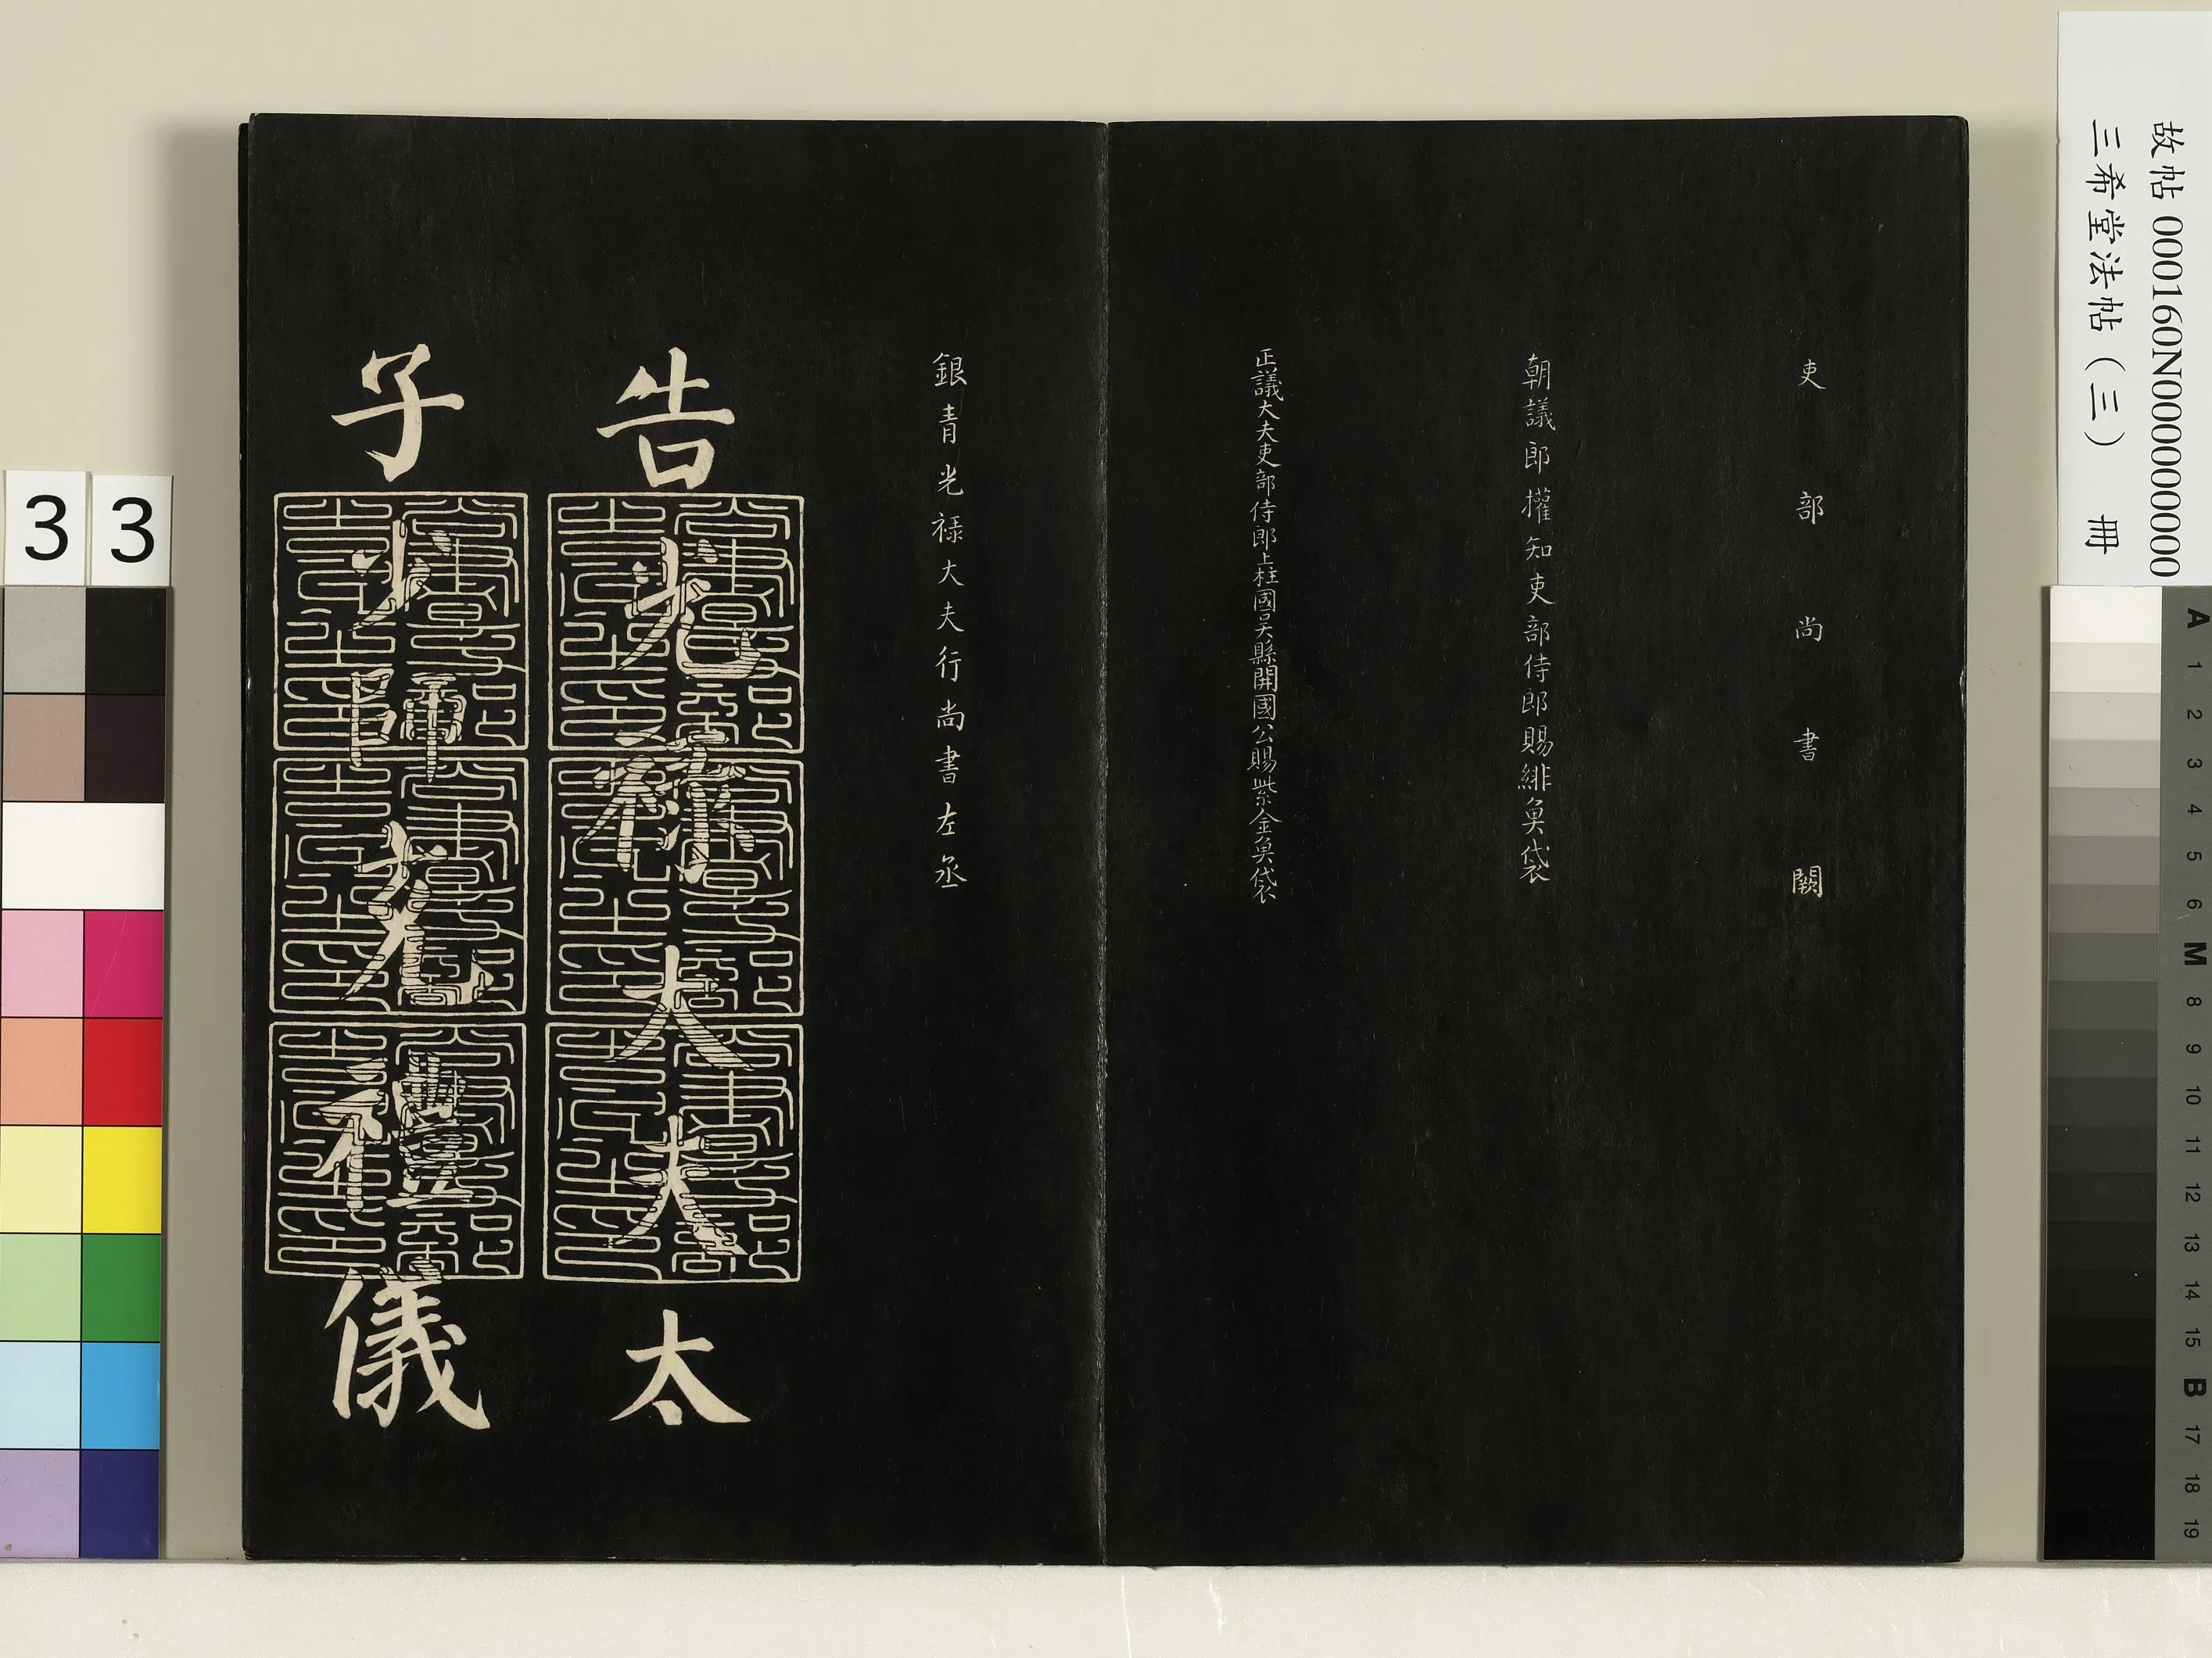 故帖 000160N000000000
三希堂法帖（三） 冊
吏部尚書闕
朝議郎權知吏部侍郎賜緋魚袋
正議大夫吏部侍郎上柱國吳縣開國公賜紫金魚袋
銀青光祿大夫行尚書左丞
告光祿大夫太
子少師充禮儀
33
A 1 2 3 4 5 6 M 8 9 10 11 12 13 14 15 B 17 18 19